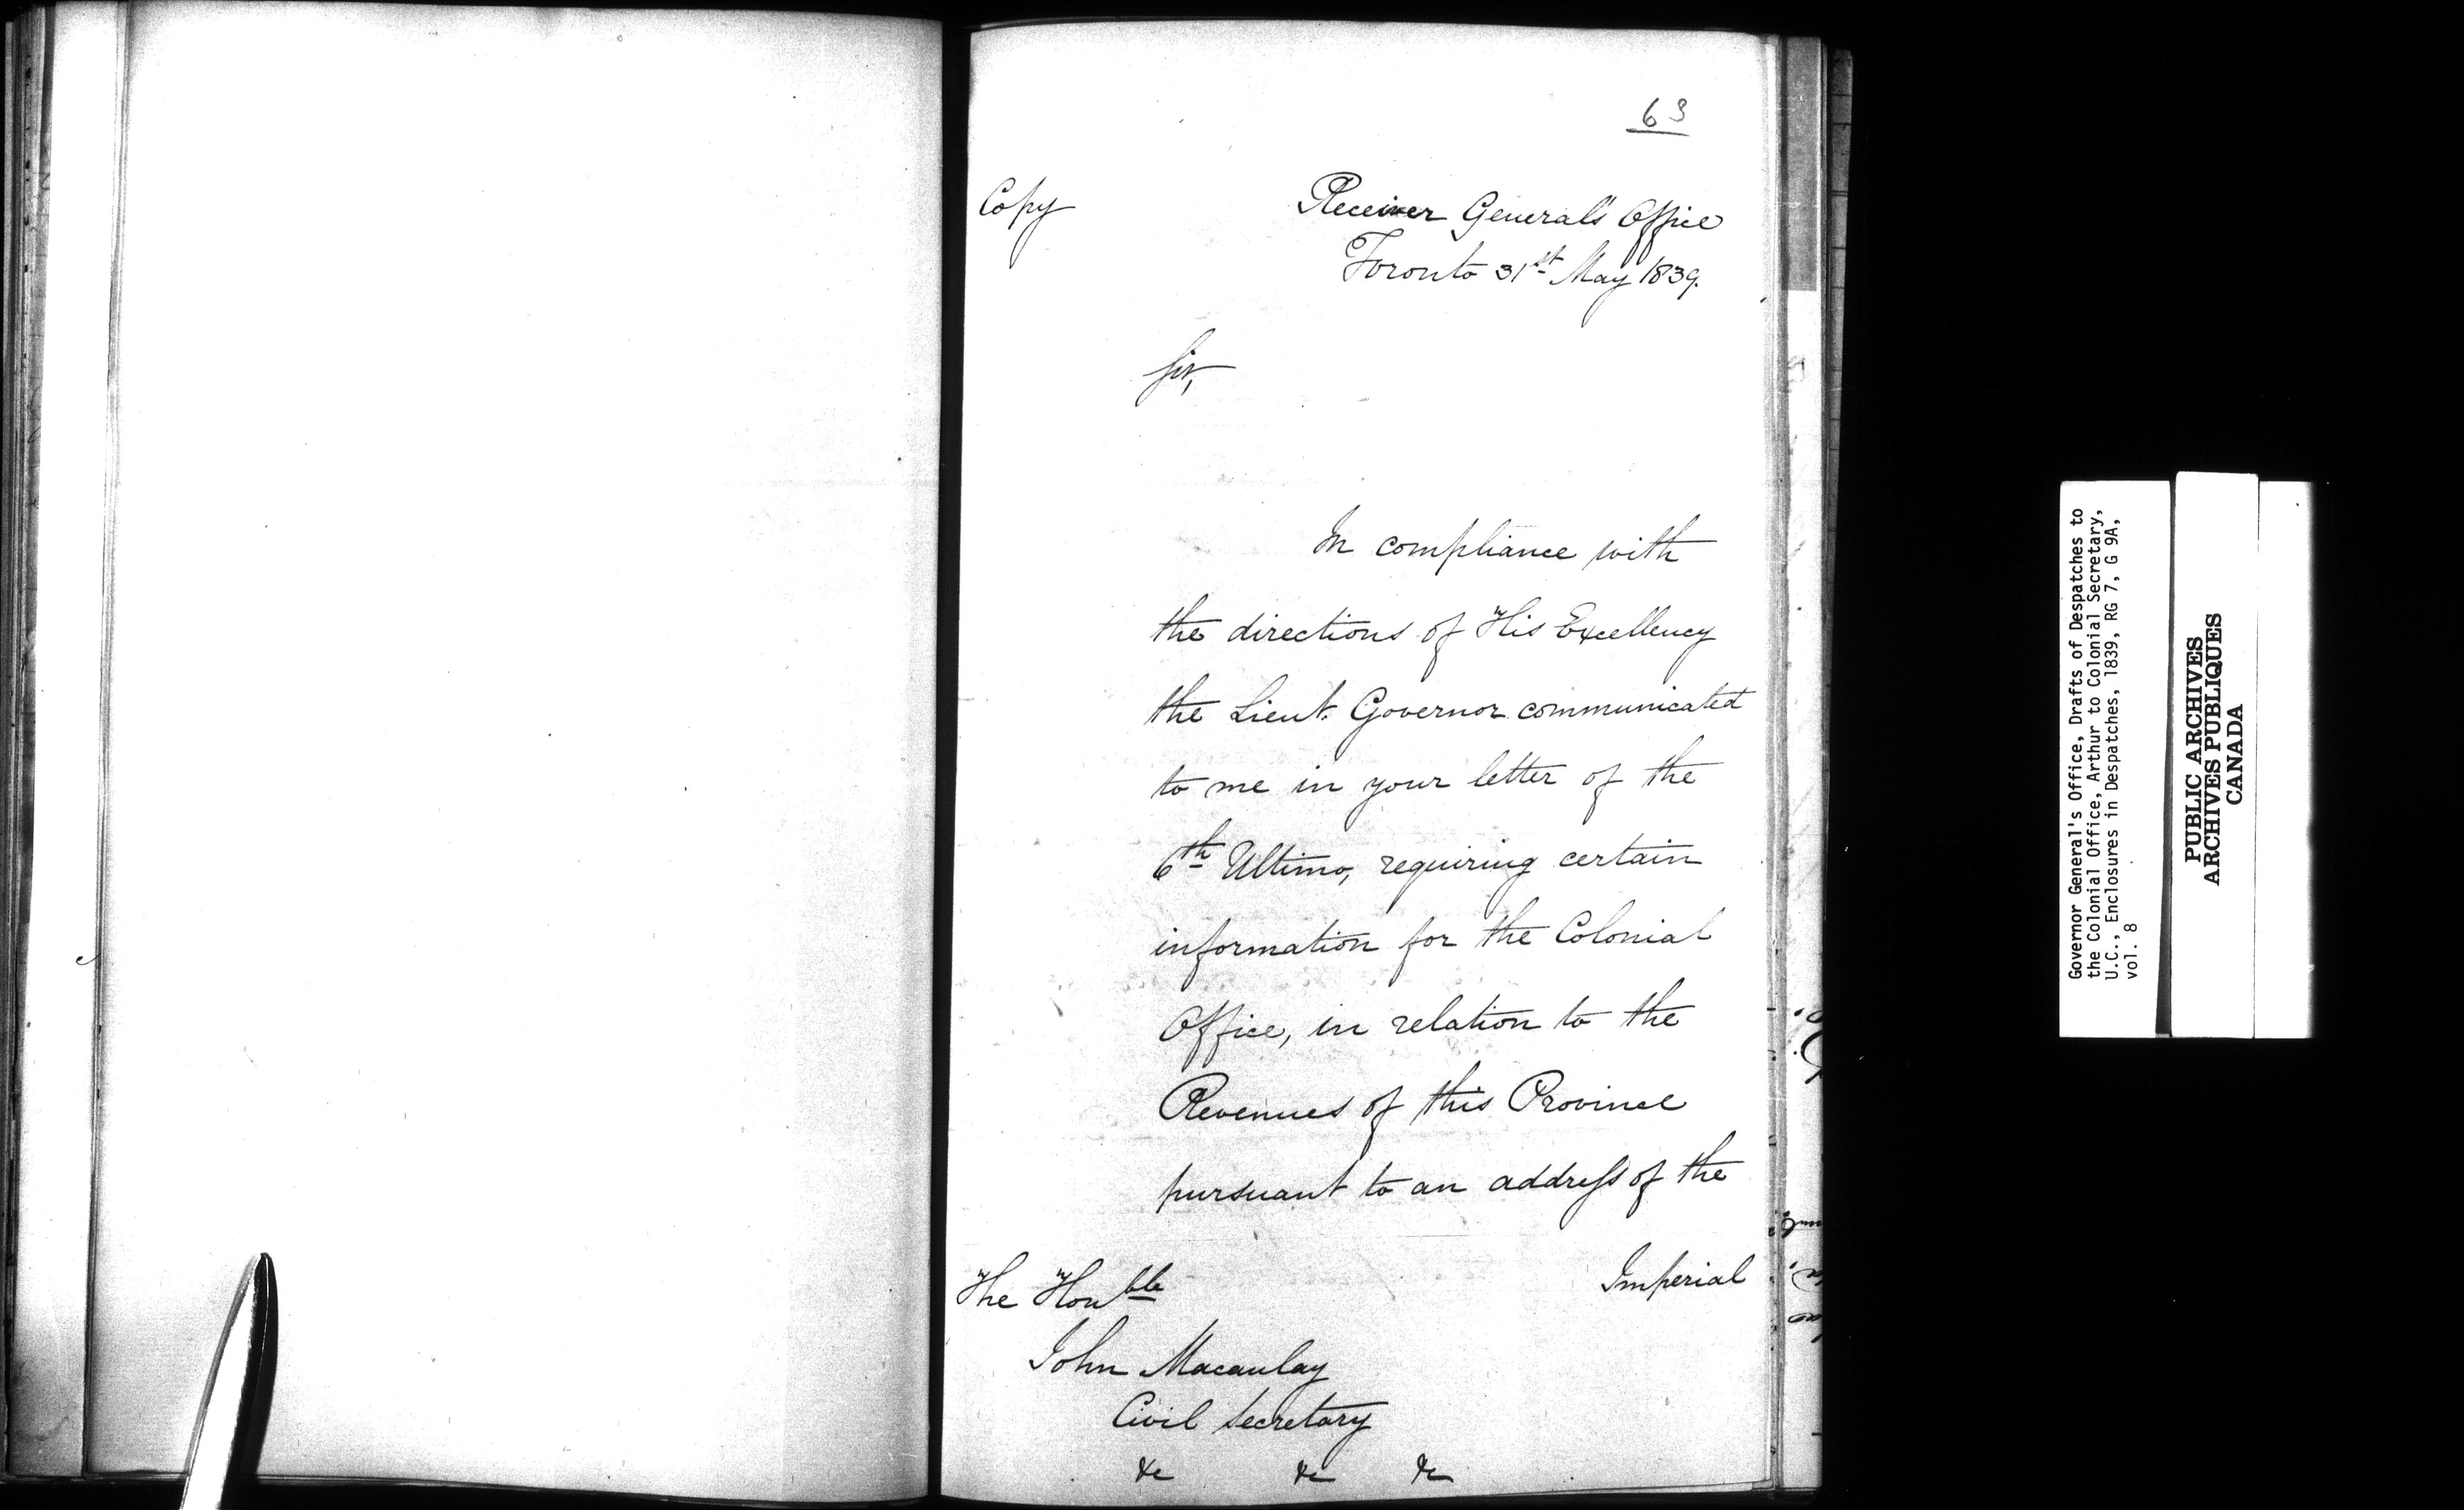 63
Copy
Receiver General's Office
Toronto 31st May 1839.
Sir,
In compliance with
the directions of His Excellency
the Lieut. Governor communicated
to me in your letter of the
6th Ultimo, requiring certain
information for the Colonial
Office, in relation to the
Revenues of this Province
pursuant to an address of the
Imperial
The Honble
John Macaulay
Civil Secretary
&c &c &c
Governor General's Office, Drafts of Despatches to
the Colonial Office, Arthur to Colonial Secretary,
U.C., Enclosures in Despatches, 1839, RG 7, G 9A,
vol. 8
PUBLIC ARCHIVES
ARCHIVES PUBLIQUES
CANADA